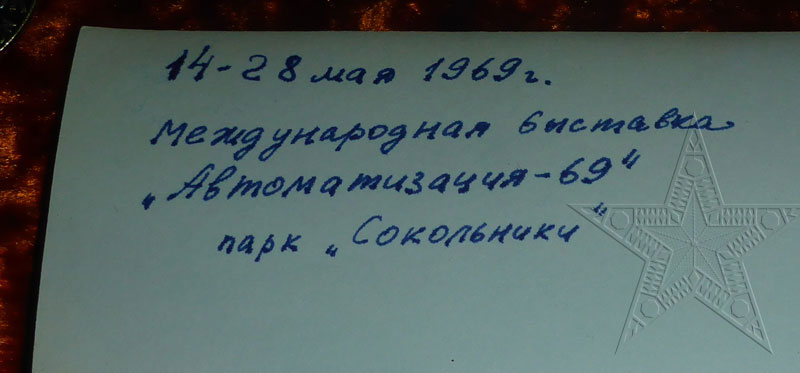 14-28 мая 1969г.
международная выставка
„Автоматизация-69"
парк „Сокольники"